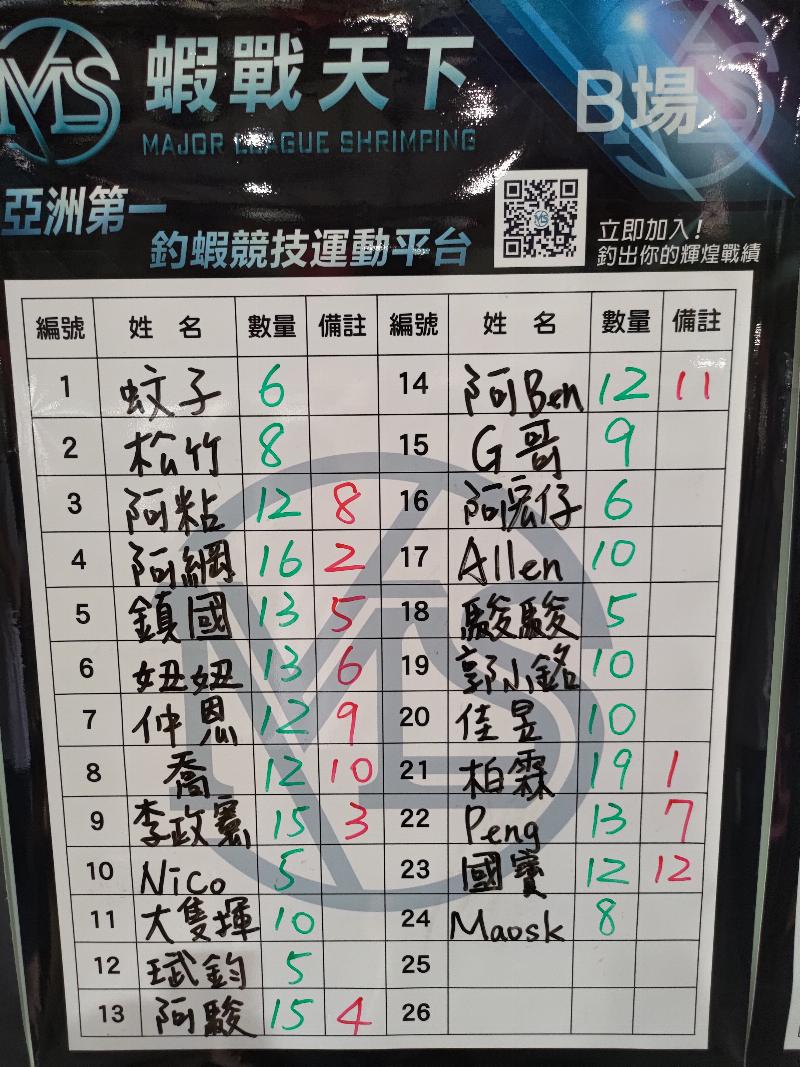 MS 蝦戰天下 B場
MAJOR LEAGUE SHRIMPING
亞洲第一
釣蝦競技運動平台
立即加入！
釣出你的輝煌戰績
編號 姓名 數量 備註 編號 姓名 數量 備註
1 蚊子 6 14 阿Ben 12 11
2 松竹 8 15 G哥 9
3 阿粘 12 8 16 阿宏仔 6
4 阿網 16 2 17 Allen 10
5 鎮國 13 5 18 駿駿 5
6 妞妞 13 6 19 郭小銘 10
7 仲恩 12 9 20 佳昱 10
8 喬 12 10 21 柏霖 19 1
9 李政憲 15 3 22 Peng 13 7
10 Nico 5 23 國寶 12 12
11 大隻揮 10 24 Maosk 8
12 珷鈞 5 25
13 阿駿 15 4 26